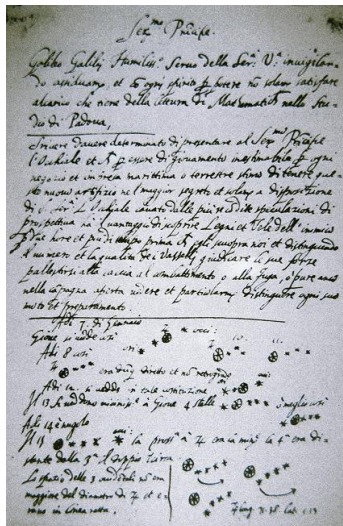 Ser.mo Principe.
Galileo Galilei Humiliss.o Servo della Ser.a V.a invigilan-
do assiduam.te et cō ogni spirito p potere nō solam.te satisfare
al carico che tiene della lettura di Matematich. nello Stu-
dio di Padova,
Scrivere d'avere determinato di presentare al Ser.mo Principe
l'Occhiale et p essere di giovamento inestimabile p ogni
negozio et impresa marittima o terrestre stimo di tenere que-
sto nuovo artifizio nel maggior segreto et solam.te a disposizione
di S. Ser.tà L'Occhiale cavato dalle più recondite speculazioni di
prospettiva ha il vantaggio di scoprire Legni et Vele dell'inimico
p due hore et più di tempo prima ch'egli scuopra noi et distinguendo
il numero et la qualità de i Vasselli giudicare le sue forze
pallestirsi alla caccia al combattimento o alla fuga, o pure anco
nella capagna aperta vedere et particolarm.te distinguere ogni suo
moto et preparamento.
Adi 7. di Gennaio
Giove si vede così
Adi 8 così
era diretto et nō retrogrado
Adi 12. si vedde in tale costituzione
Il 13 si veddono vicinissime a Giove 4 stelle meglio così
Adi 14 è nugolo
Il 15 la pross.a a 4 era la min.re la 4.a era di-
stante dalla 3.a il doppio
Lo spazio delle 3 occidētali nō era
maggiore del diametro di 4 et e-
rano in linea retta.